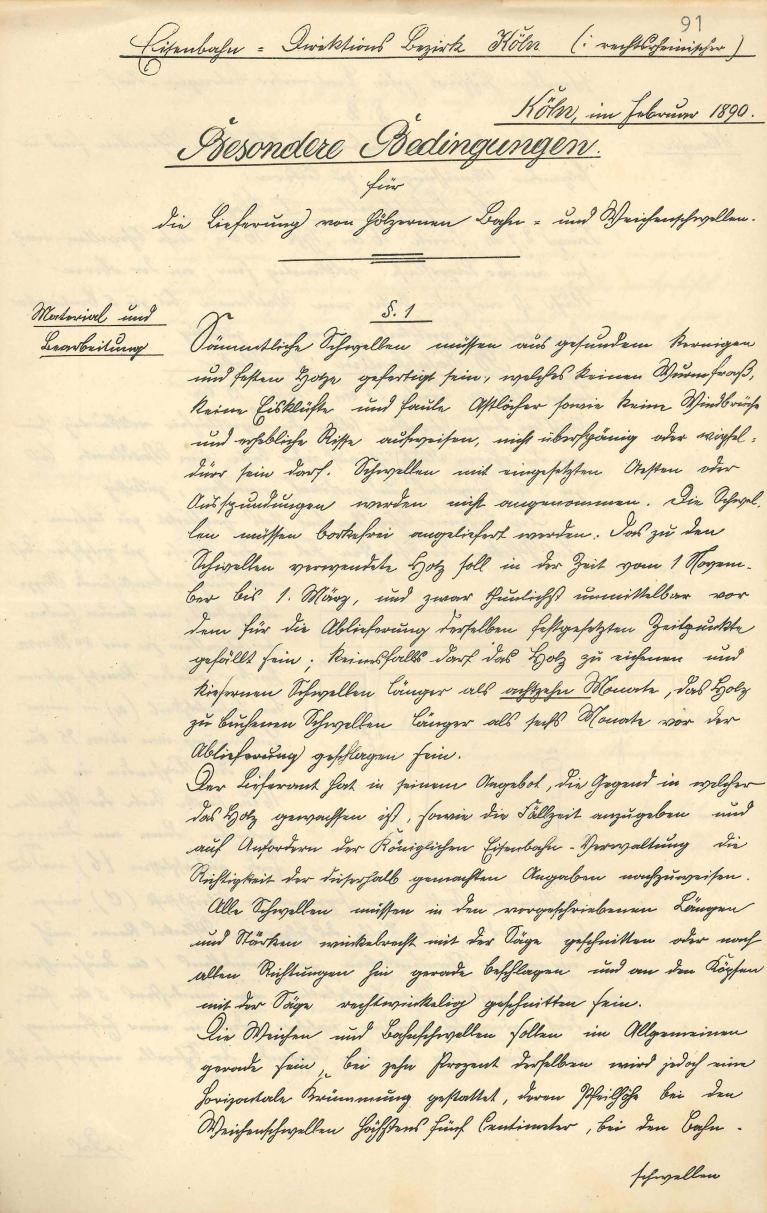 91
Eisenbahn = Direktions Bezirk Köln (: rechtsrheinischer)
Köln, im Februar 1890.
Besondere Bedingungen.
für
die Lieferung von hölzernen Bahn = und Weichenschwellen.
§. 1
Material und
Bearbeitung
Sämmtliche Schwellen müssen aus gesundem kernigen
und festen Holze gefertigt sein, welches keinen Wurmfraß,
keine Eisklüfte und faule Astlöcher sowie keine Windbrüche
und erhebliche Risse aufweisen, nicht überspänig oder wipfel=
dürr sein darf. Schwellen mit eingesetzten Aesten oder
Ausspundungen werden nicht angenommen. Die Schwel-
len müssen borkefrei angeliefert werden. Das zu den
Schwellen verwendete Holz soll in der Zeit vom 1 Novem-
ber bis 1. März, und zwar thunlichst unmittelbar vor
dem für die Ablieferung derselben festgesetzten Zeitpunkte
gefällt sein; keinesfalls darf das Holz zu eichenen und
kiefernen Schwellen länger als achtzehn Monate, das Holz
zu buchenen Schwellen länger als sechs Monate vor der
Ablieferung geschlagen sein.
Der Lieferant hat in seinem Angebot, die Gegend in welcher
das Holz gewachsen ist, sowie die Fällzeit anzugeben und
auf Anfordern der Königlichen Eisenbahn-Verwaltung die
Richtigkeit der dieserhalb gemachten Angaben nachzuweisen.
Alle Schwellen müssen in den vorgeschriebenen Längen
und Stärken winkelrecht mit der Säge geschnitten oder nach
allen Richtungen hin gerade beschlagen und an den Köpfen
mit der Säge rechtwinkelig geschnitten sein.
Die Weichen und Bahnschwellen sollen im Allgemeinen
gerade sein, bei zehn Prozent derselben wird jedoch eine
horizontale Krümmung gestattet, deren Pfeilhöhe bei den
Weichenschwellen höchstens fünf Centimeter, bei den Bahn-
schwellen